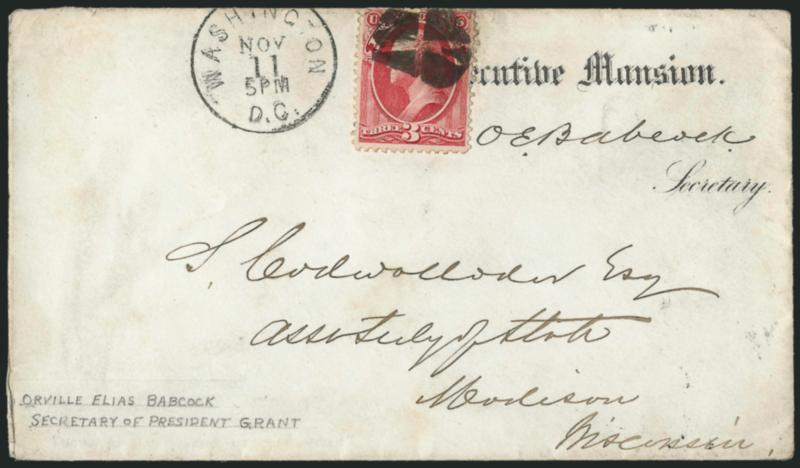 WASHINGTON
NOV
11
5PM
D.C.
THREE 3 CENTS
ecutive Mansion.
O.E. Babcock
Secretary.
S. Codwollader Esq
Asst Secy of State
Madison
Wisconsin.
ORVILLE ELIAS BABCOCK
SECRETARY OF PRESIDENT GRANT